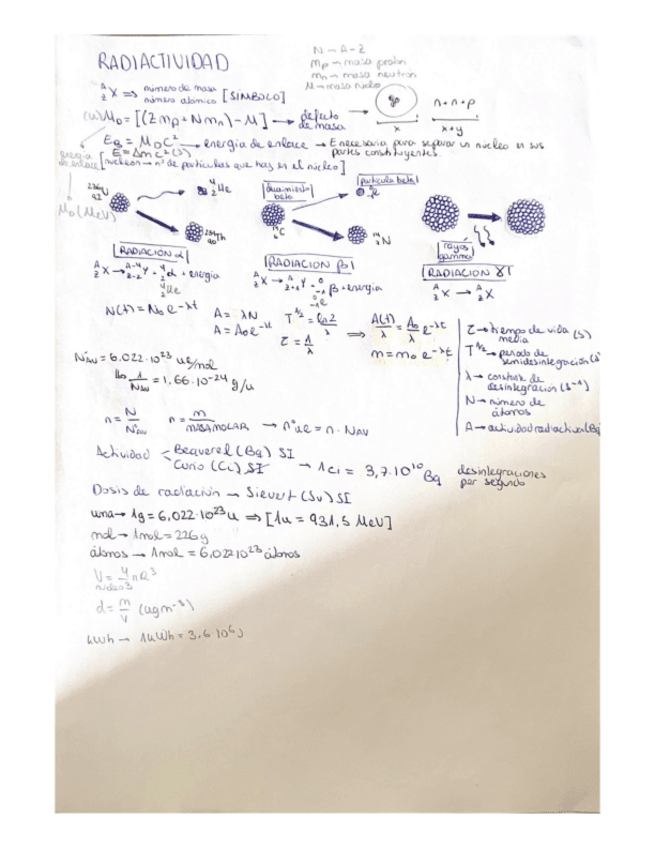 RADIACTIVIDAD
N → A-Z
mp → masa proton
mn → masa neutron
M → masa nucleo
A Z X ⇒ número de masa
número atómico [SÍMBOLO]
(u) M_D = [(Z mp + N mn) - M] → defecto de masa
x
n+n+p
x+y
E_B = M_D c² → energia de enlace → E necesaria para separar un nucleo en sus partes constituyentes.
E = Δmc² (J)
energia de enlace
[nucleon → nº de particulas que hay en el nucleo]
M_D (MeV)
4 2 He
234 90 Th
RADIACIÓN α
A Z X → A-4 Z-2 Y + 4 2 α + energia
4 2 He
decaimiento beta
particula beta
14 6 C
14 7 N
RADIACION β
A Z X → A Z+1 Y + 0 -1 β + energia
0 -1 e
rayos gamma
RADIACIÓN γ
A Z X → A Z X
N(t) = N₀ e^-λt
A = λN
A = A₀ e^-λt
T^1/2 = Ln2/λ
τ = 1/λ
⇒ A(t)/λ = A₀/λ e^-λt
m = m₀ e^-λt
τ → tiempo de vida media (s)
T^1/2 → periodo de semidesintegración (s
λ → constante de desintegración (s-1)
N → número de átomos
A → actividad radiactiva (Bq
N_AV = 6,022·10²³ ue/mol
1/N_AV = 1,66·10^-24 g/u
n = N/N_AV
n = m/MASA MOLAR → nº ue = n · N_AV
Actividad
Bequerel (Bq) SI
Curio (Ci) SI → 1Ci = 3,7·10¹⁰ Bq
desintegraciones por segundo
Dosis de radiación → Sievert (Sv) SI
uma → 1g = 6,022·10²³ u ⇒ [1u = 931,5 MeV]
mol → 1mol = 226g
átomos → 1mol = 6,022·10²³ átomos
V núcleo = 4/3 π R³
d = m/V (kgm^-3)
kWh → 1kWh = 3,6·10⁶ J